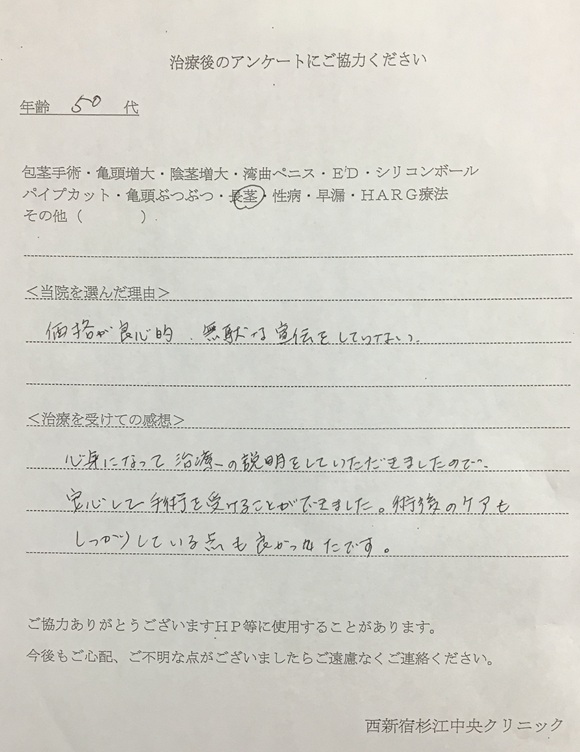 治療後のアンケートにご協力ください
年齢 50 代
包茎手術・亀頭増大・陰茎増大・湾曲ペニス・ED・シリコンボール
パイプカット・亀頭ぶつぶつ・長茎・性病・早漏・HARG療法
その他（　　　）
＜当院を選んだ理由＞
価格が良心的、無駄な宣伝をしていない。
＜治療を受けての感想＞
心身になって治療への説明をしていただきましたので、
安心して手術を受けることができました。術後のケアも
しっかりしている点も良かったです。
ご協力ありがとうございますHP等に使用することがあります。
今後もご心配、ご不明な点がございましたらご遠慮なくご連絡ください。
西新宿杉江中央クリニック